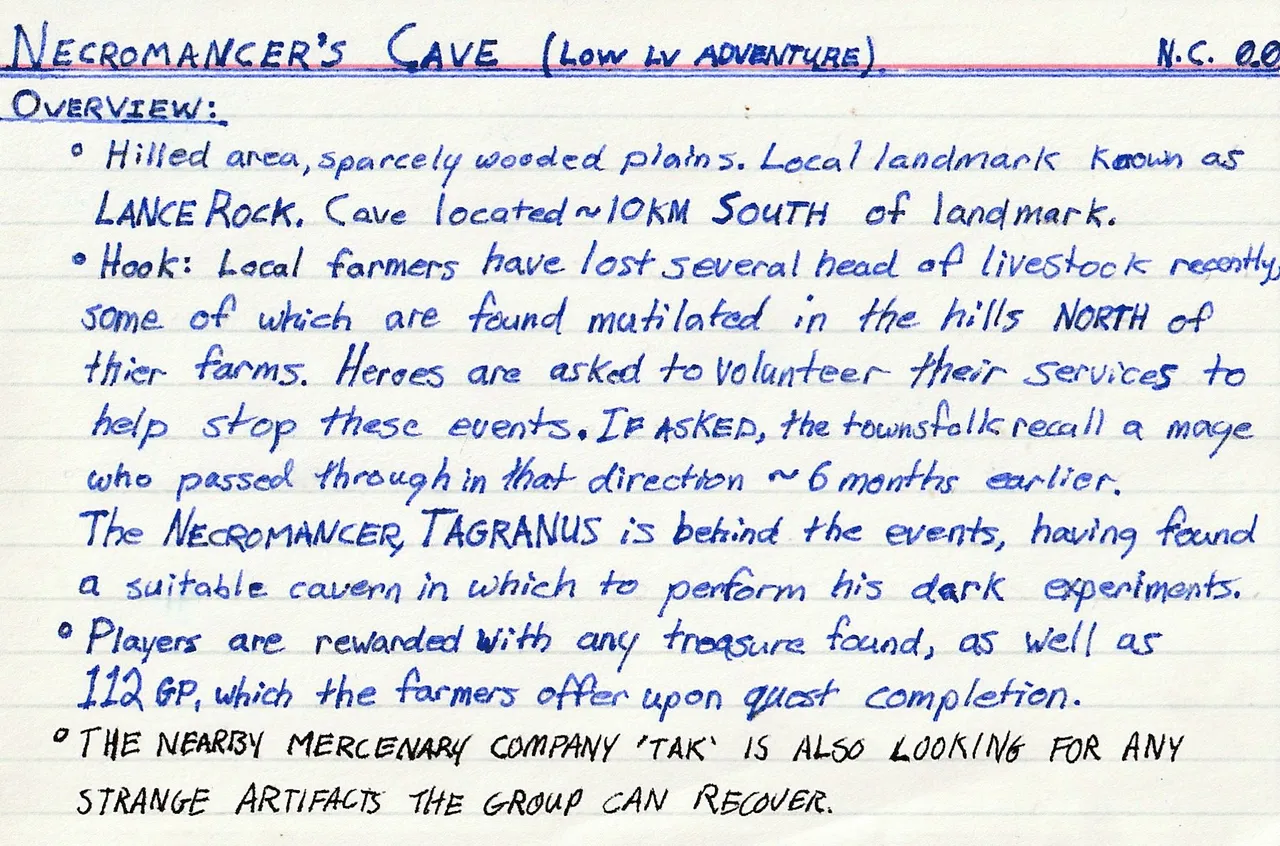 NECROMANCER'S CAVE (LOW LV ADVENTURE). N.C. 0.0
OVERVIEW:
° Hilled area, sparcely wooded plains. Local landmark known as
LANCE ROCK. Cave located ~10KM SOUTH of landmark.
• Hook: Local farmers have lost several head of livestock recently,
some of which are found mutilated in the hills NORTH of
thier farms. Heroes are asked to volunteer their services to
help stop these events. IF ASKED, the townsfolk recall a mage
who passed through in that direction ~ 6 months earlier.
The NECROMANCER, TAGRANUS is behind the events, having found
a suitable cavern in which to perform his dark experiments.
° Players are rewarded with any treasure found, as well as
112 GP, which the farmers offer upon quest completion.
° THE NEARBY MERCENARY COMPANY 'TAK' IS ALSO LOOKING FOR ANY
STRANGE ARTIFACTS THE GROUP CAN RECOVER.